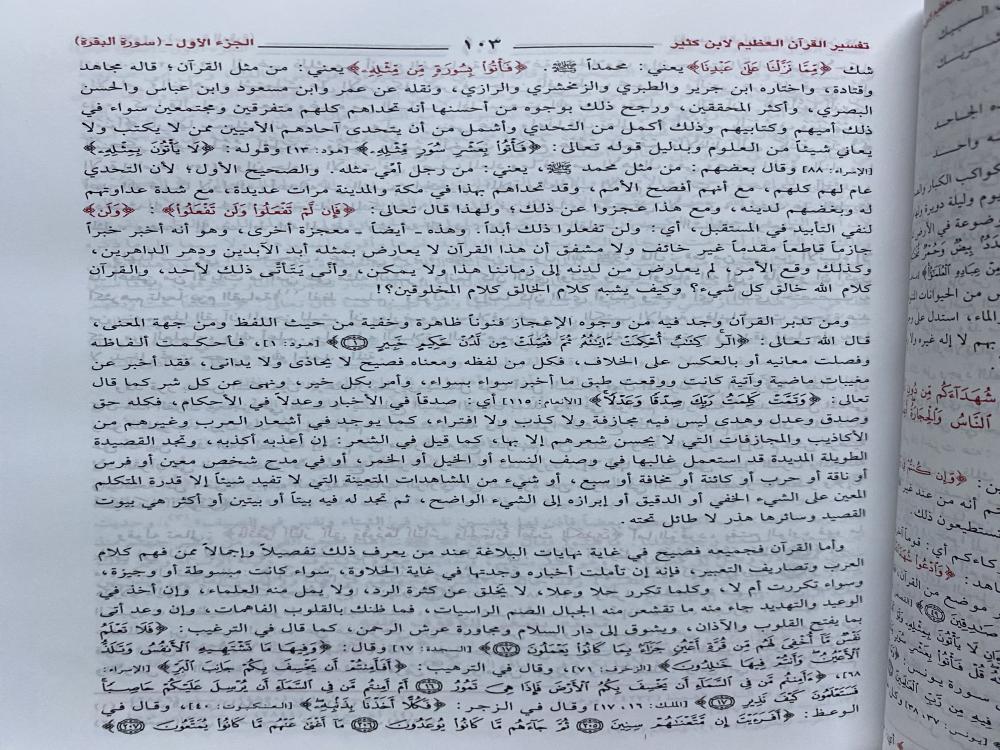 تفسير القرآن العظيم لابن كثير
١٠٣
الجزء الأول ـ (سورة البقرة)
شك ﴿مِّمَّا نَزَّلْنَا عَلَىٰ عَبْدِنَا﴾ يعني: محمداً ﷺ ﴿فَأْتُوا۟ بِسُورَةٍ مِّن مِّثْلِهِۦ﴾ يعني: من مثل القرآن؛ قاله مجاهد
وقتادة، واختاره ابن جرير والطبري والزمخشري والرازي، ونقله عن عمر وابن مسعود وابن عباس والحسن
البصري، وأكثر المحققين، ورجح ذلك بوجوه من أحسنها أنه تحداهم كلهم متفرقين ومجتمعين سواء في
ذلك أميهم وكتابيهم وذلك أكمل من التحدي وأشمل من أن يتحدى آحادهم الأميين ممن لا يكتب ولا
يعاني شيئاً من العلوم وبدليل قوله تعالى: ﴿فَأْتُوا۟ بِعَشْرِ سُوَرٍ مِّثْلِهِۦ﴾ [هود: ١٣] وقوله: ﴿لَا يَأْتُونَ بِمِثْلِهِۦ﴾
[الإسراء: ٨٨] وقال بعضهم: من مثل محمد ﷺ، يعني: من رجل أمّي مثله. والصحيح الأول؛ لأن التحدي
عام لهم كلهم، مع أنهم أفصح الأمم، وقد تحداهم بهذا في مكة والمدينة مرات عديدة، مع شدة عداوتهم
له وبغضهم لدينه، ومع هذا عجزوا عن ذلك؛ ولهذا قال تعالى: ﴿فَإِن لَّمْ تَفْعَلُوا۟ وَلَن تَفْعَلُوا۟﴾ : ﴿وَلَن﴾
لنفي التأبيد في المستقبل، أي: ولن تفعلوا ذلك أبداً: وهذه ـ أيضاً ـ معجزة أخرى، وهو أنه أخبر خبراً
جازماً قاطعاً مقدماً غير خائف ولا مشفق أن هذا القرآن لا يعارض بمثله أبد الآبدين ودهر الداهرين،
وكذلك وقع الأمر، لم يعارض من لدنه إلى زماننا هذا ولا يمكن، وأنّى يَتَأتّى ذلك لأحد، والقرآن
كلام الله خالق كل شيء؟ وكيف يشبه كلام الخالق كلام المخلوقين؟!
ومن تدبر القرآن وجد فيه من وجوه الإعجاز فنوناً ظاهرة وخفية من حيث اللفظ ومن جهة المعنى،
قال الله تعالى: ﴿الٓرۚ كِتَٰبٌ أُحْكِمَتْ ءَايَٰتُهُۥ ثُمَّ فُصِّلَتْ مِن لَّدُنْ حَكِيمٍ خَبِيرٍ ۝١﴾ [هود: ١]، فأحكمت ألفاظه
وفصلت معانيه أو بالعكس على الخلاف، فكل من لفظه ومعناه فصيح لا يحاذى ولا يدانى، فقد أخبر عن
مغيبات ماضية وآتية كانت ووقعت طبق ما أخبر سواء بسواء، وأمر بكل خير، ونهى عن كل شر كما قال
تعالى: ﴿وَتَمَّتْ كَلِمَتُ رَبِّكَ صِدْقًا وَعَدْلًا﴾ [الأنعام: ١١٥] أي: صدقاً في الأخبار وعدلاً في الأحكام، فكله حق
وصدق وعدل وهدى ليس فيه مجازفة ولا كذب ولا افتراء، كما يوجد في أشعار العرب وغيرهم من
الأكاذيب والمجازفات التي لا يحسن شعرهم إلا بها، كما قيل في الشعر: إن أعذبه أكذبه، وتجد القصيدة
الطويلة المديدة قد استعمل غالبها في وصف النساء أو الخيل أو الخمر، أو في مدح شخص معين أو فرس
أو ناقة أو حرب أو كائنة أو مخافة أو سبع، أو شيء من المشاهدات المتعينة التي لا تفيد شيئاً إلا قدرة المتكلم
المعين على الشيء الخفي أو الدقيق أو إبرازه إلى الشيء الواضح، ثم تجد له فيه بيتاً أو بيتين أو أكثر هي بيوت
القصيد وسائرها هذر لا طائل تحته.
وأما القرآن فجميعه فصيح في غاية نهايات البلاغة عند من يعرف ذلك تفصيلاً وإجمالاً ممن فهم كلام
العرب وتصاريف التعبير، فإنه إن تأملت أخباره وجدتها في غاية الحلاوة، سواء كانت مبسوطة أو وجيزة،
وسواء تكررت أم لا، وكلما تكرر حلا وعلا، لا يخلق عن كثرة الرد، ولا يمل منه العلماء، وإن أخذ في
الوعيد والتهديد جاء منه ما تقشعر منه الجبال الصم الراسيات، فما ظنك بالقلوب الفاهمات، وإن وعد أتى
بما يفتح القلوب والآذان، ويشوق إلى دار السلام ومجاورة عرش الرحمن، كما قال في الترغيب: ﴿فَلَا تَعْلَمُ
نَفْسٌ مَّآ أُخْفِىَ لَهُم مِّن قُرَّةِ أَعْيُنٍ جَزَآءًۢ بِمَا كَانُوا۟ يَعْمَلُونَ ۝١٧﴾ [السجدة: ١٧] وقال: ﴿وَفِيهَا مَا تَشْتَهِيهِ ٱلْأَنفُسُ وَتَلَذُّ
ٱلْأَعْيُنُ وَأَنتُمْ فِيهَا خَٰلِدُونَ﴾ [الزخرف: ٧١]، وقال في الترهيب: ﴿أَفَأَمِنتُمْ أَن يَخْسِفَ بِكُمْ جَانِبَ ٱلْبَرِّ﴾ [الإسراء:
٦٨]، ﴿ءَأَمِنتُم مَّن فِى ٱلسَّمَآءِ أَن يَخْسِفَ بِكُمُ ٱلْأَرْضَ فَإِذَا هِىَ تَمُورُ ۝١٦ أَمْ أَمِنتُم مَّن فِى ٱلسَّمَآءِ أَن يُرْسِلَ عَلَيْكُمْ حَاصِبًا
فَسَتَعْلَمُونَ كَيْفَ نَذِيرِ ۝١٧﴾ [الملك: ١٦، ١٧] وقال في الزجر: ﴿فَكُلًّا أَخَذْنَا بِذَنۢبِهِۦ﴾ [العنكبوت: ٤٠]، وقال في
الوعظ: ﴿أَفَرَءَيْتَ إِن مَّتَّعْنَٰهُمْ سِنِينَ ۝٢٠٥ ثُمَّ جَآءَهُم مَّا كَانُوا۟ يُوعَدُونَ ۝٢٠٦ مَآ أَغْنَىٰ عَنْهُم مَّا كَانُوا۟ يُمَتَّعُونَ ۝٢٠٧﴾